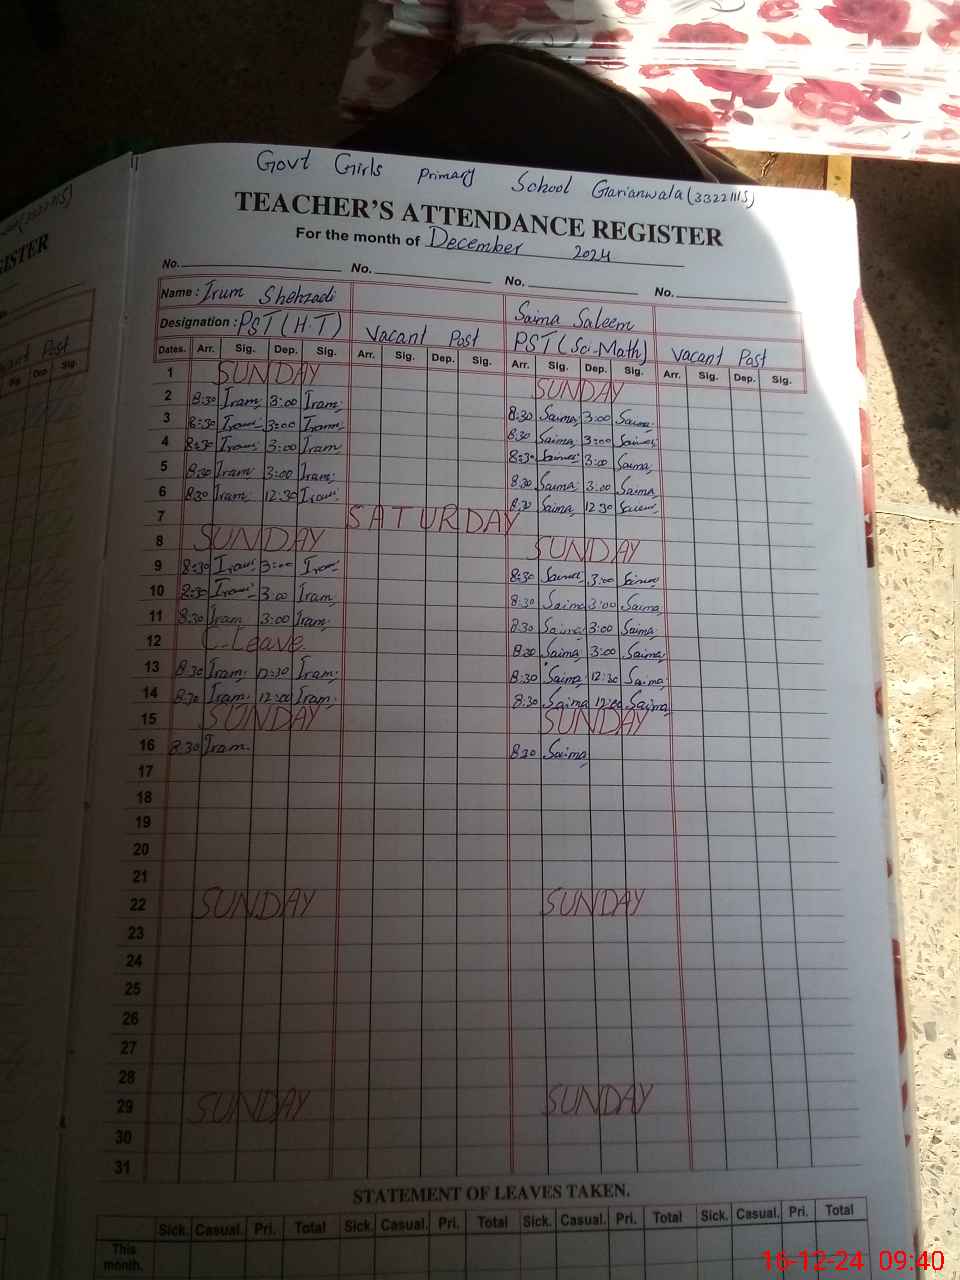 Govt Girls Primary School Garianwala (33221115)
TEACHER'S ATTENDANCE REGISTER
For the month of December 2024
No. No. No. No.
Name : Irum Shehzadi Saima Saleem
Designation : PST (H.T) Vacant Post PST (Sci-Math) Vacant Post
Dates. Arr. Sig. Dep. Sig. Arr. Sig. Dep. Sig. Arr. Sig. Dep. Sig. Arr. Sig. Dep. Sig.
1 SUNDAY SUNDAY
2 8:30 Iram 3:00 Iram 8:30 Saima 3:00 Saima
3 8:30 Iram 3:00 Iram 8:30 Saima 3:00 Saima
4 8:30 Iram 3:00 Iram 8:30 Saima 3:00 Saima
5 8:30 Iram 3:00 Iram 8:30 Saima 3:00 Saima
6 8:30 Iram 12:30 Iram 8:30 Saima 12:30 Saima
7 SATURDAY
8 SUNDAY SUNDAY
9 8:30 Iram 3:00 Iram 8:30 Saima 3:00 Saima
10 8:30 Iram 3:00 Iram 8:30 Saima 3:00 Saima
11 8:30 Iram 3:00 Iram 8:30 Saima 3:00 Saima
12 C-Leave 8:30 Saima 3:00 Saima
13 8:30 Iram 12:30 Iram 8:30 Saima 12:30 Saima
14 8:30 Iram 12:00 Iram 8:30 Saima 12:00 Saima
15 SUNDAY SUNDAY
16 8:30 Iram 8:30 Saima
17
18
19
20
21
22 SUNDAY SUNDAY
23
24
25
26
27
28
29 SUNDAY SUNDAY
30
31
STATEMENT OF LEAVES TAKEN.
Sick. Casual. Pri. Total Sick. Casual. Pri. Total Sick. Casual. Pri. Total Sick. Casual. Pri. Total
This
month.
16-12-24 09:40